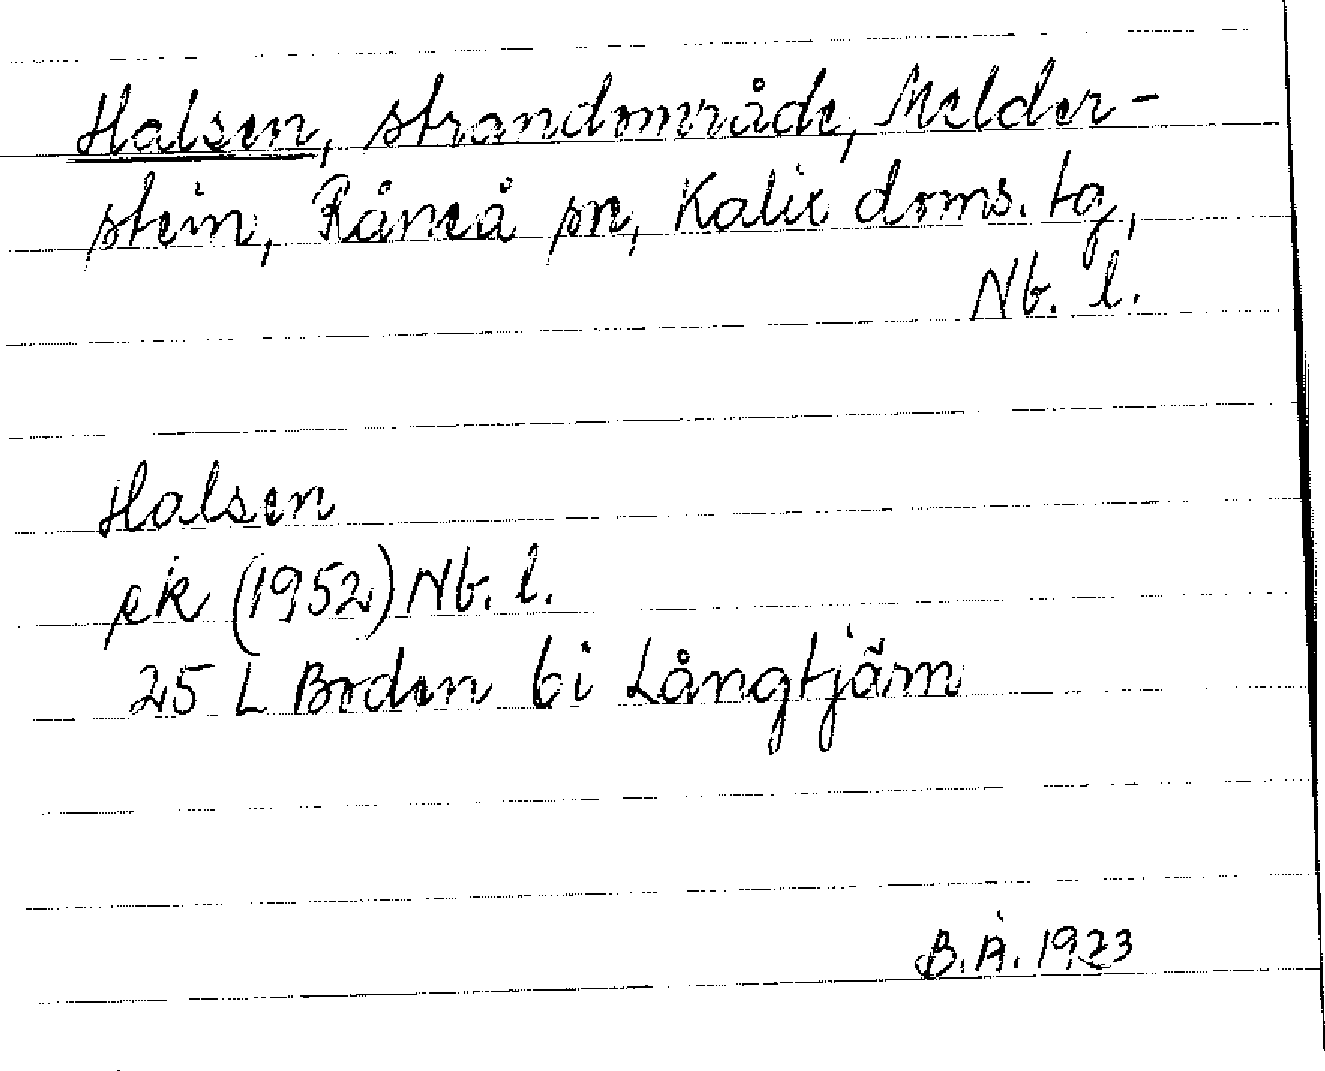 Halsen, strandområde, Melder-
stein, Råneå sn, Kalix doms. tg,
Nb. l.
Halsen
ek (1952) Nb. l.
25 L Boden 6i Långtjärn
B.Å. 1973